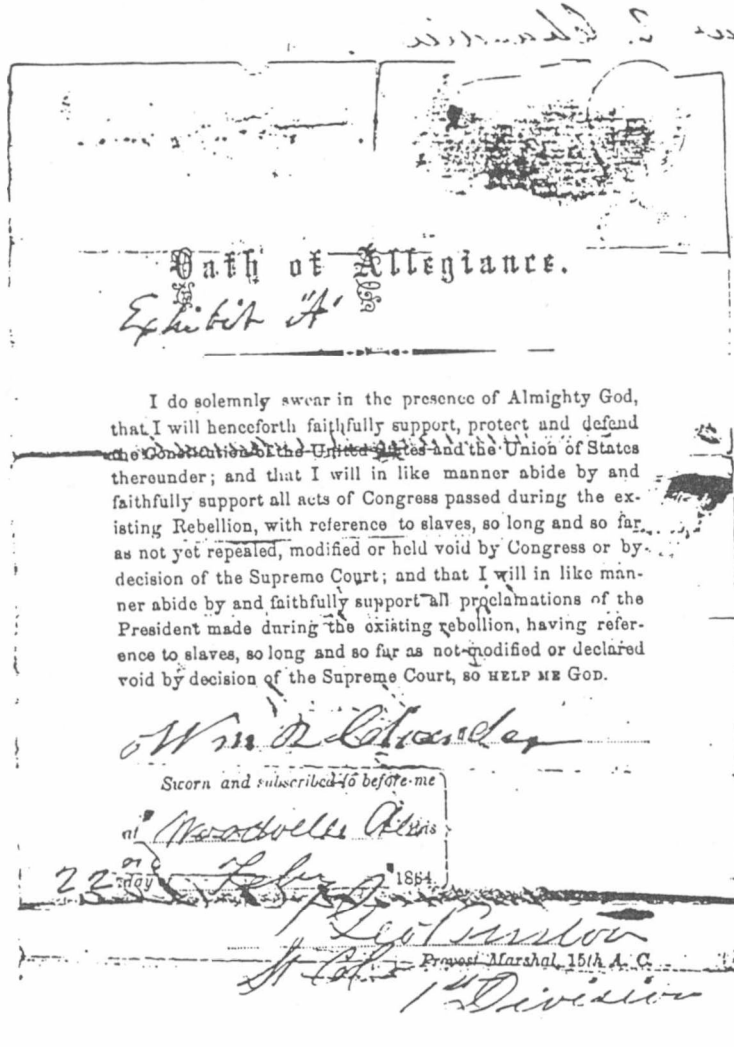 Oath of Allegiance.
Exhibit "A"
I do solemnly swear in the presence of Almighty God,
that I will henceforth faithfully support, protect and defend
the Constitution of the United States and the Union of States
thereunder; and that I will in like manner abide by and
faithfully support all acts of Congress passed during the ex-
isting Rebellion, with reference to slaves, so long and so far
as not yet repealed, modified or held void by Congress or by
decision of the Supreme Court; and that I will in like man-
ner abide by and faithfully support all proclamations of the
President made during the existing rebellion, having refer-
ence to slaves, so long and so far as not modified or declared
void by decision of the Supreme Court, SO HELP ME GOD.
Wm R Chandler
Sworn and subscribed to before me
at Woodville Ala this
22 day Feby 1864.
Geo
Provost Marshal, 15th A. C.
1st Division